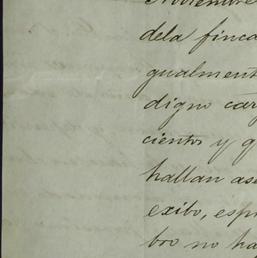 Noviembre
dela finca
gualment
digno car
cientos y q
hallan ase
exibo, espr
bro no ha